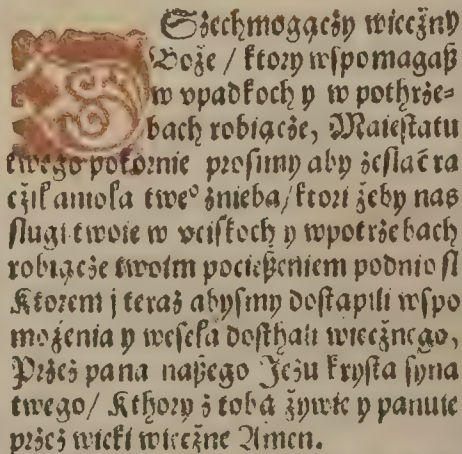 Wszechmogączy wieczny
Boże / ktory wspomagaß
w vpadkoch y w pothrze-
bach robiącze, Maiestatu
twego pokornie prosimy aby zesłać ra
cził amoła tweº znieba/ktori żeby nas
slugi twoie w vciskoch y wpotrzebach
robiącze twoim pocießeniem podnio sl
Ktorem j teraz abysmy dostapili wspo
możenia y wesela dosthali wiecznego,
Przez pana naßego Jezu krysta syna
twego/ Kthory z tobą żywie y panuie
przez wieki wieczne Amen.